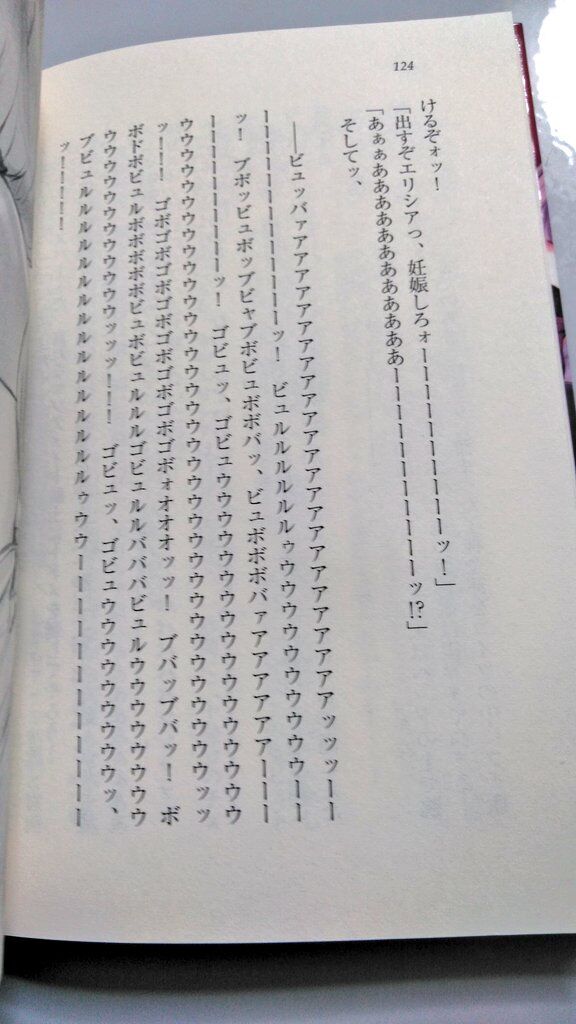 けるぞォッ!
「出すぞエリシアっ、妊娠しろォーーーーーーーーーーッ!」
「あぁぁああああああああああああーーーーーーーーーーッ!?」
そしてッ、
――ビュッバァアアアアアアアアアアアアアアアアアアアアアアアアアッッッーー
ーーーーーーーーーーーッ! ビュルルルルルルゥウウウウウウウウウウウーー
ッ! ブボッビュボッブビャブボビュボボバッ、ビュボボボバァアアアアアアーーー
ーーーーーーーーーーッ! ゴビュッ、ゴビュウウウウウウウウウウウウウウウウ
ウウウウウウウウウウウウウウウウウウウウウウウウウウウウウウウウウウウウッッ
ッ!!! ゴボゴボゴボゴボゴボゴボゴボォオオオッッ! ブバッブバッ! ボ
ボドボビュルボボボボボビュボビュルルルゴビュルルバババビュルウウウウウウウウ
ウウウウウウウウウウウウッッッ!!! ゴビュッ、ゴビュウウウウウウウウウウッ、
ブビュルルルルルルルルルルルルルルルルルゥウウーーーーーーーーーーーーーー
ッ!!!!!
124